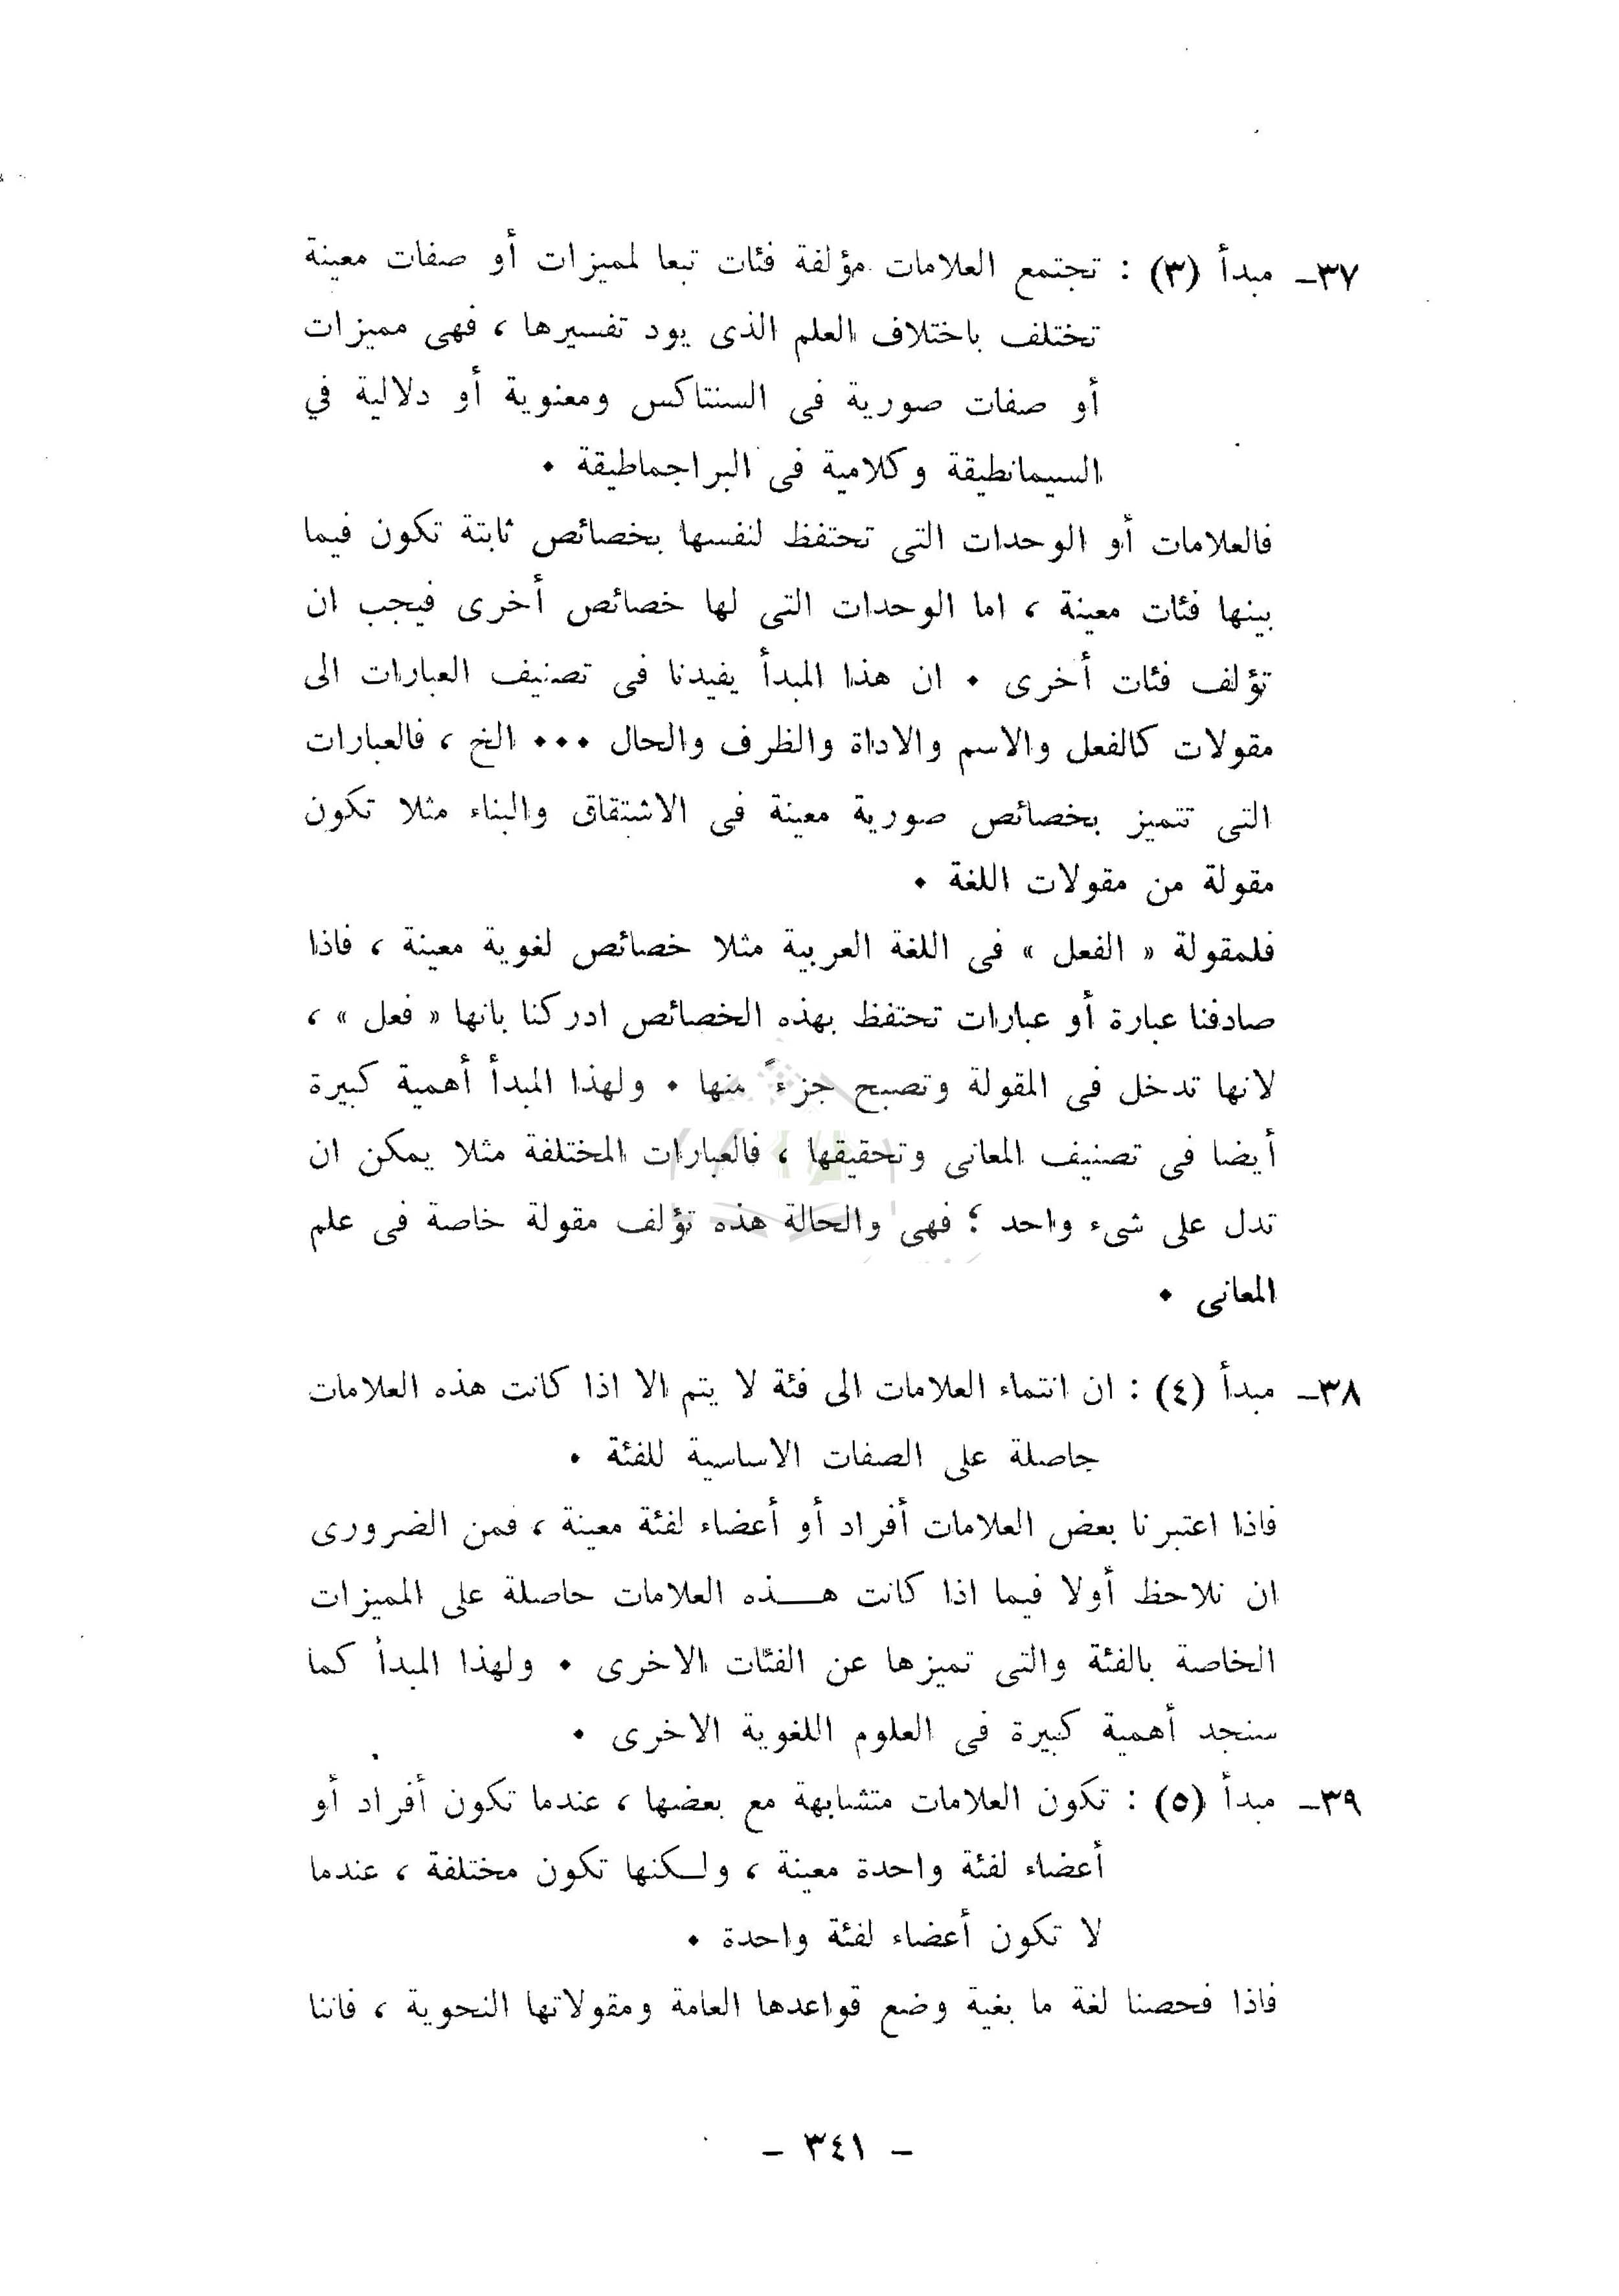 ٣٧ـ مبدأ (٣) : تجتمع العلامات مؤلفة فئات تبعا لمميزات أو صفات معينة
تختلف باختلاف العلم الذى يود تفسيرها ، فهى مميزات
أو صفات صورية فى السنتاكس ومعنوية أو دلالية في
السيمانطيقة وكلامية فى البراجماطيقة ٠
فالعلامات أو الوحدات التى تحتفظ لنفسها بخصائص ثابتة تكون فيما
بينها فئات معينة ، اما الوحدات التى لها خصائص أخرى فيجب ان
تؤلف فئات أخرى ٠ ان هذا المبدأ يفيدنا فى تصنيف العبارات الى
مقولات كالفعل والاسم والاداة والظرف والحال ٠٠٠ الخ ، فالعبارات
التى تتميز بخصائص صورية معينة فى الاشتقاق والبناء مثلا تكون
مقولة من مقولات اللغة ٠
فلمقولة « الفعل » فى اللغة العربية مثلا خصائص لغوية معينة ، فاذا
صادفنا عبارة أو عبارات تحتفظ بهذه الخصائص ادركنا بانها « فعل » ،
لانها تدخل فى المقولة وتصبح جزءً منها ٠ ولهذا المبدأ أهمية كبيرة
أيضا فى تصنيف المعانى وتحقيقها ، فالعبارات المختلفة مثلا يمكن ان
تدل على شىء واحد ؛ فهى والحالة هذه تؤلف مقولة خاصة فى علم
المعانى ٠
٣٨ـ مبدأ (٤) : ان انتماء العلامات الى فئة لا يتم الا اذا كانت هذه العلامات
حاصلة على الصفات الاساسية للفئة ٠
فاذا اعتبرنا بعض العلامات أفراد أو أعضاء لفئة معينة ، فمن الضرورى
ان نلاحظ أولا فيما اذا كانت هـــذه العلامات حاصلة على المميزات
الخاصة بالفئة والتى تميزها عن الفئات الاخرى ٠ ولهذا المبدأ كما
سنجد أهمية كبيرة فى العلوم اللغوية الاخرى ٠
٣٩ـ مبدأ (٥) : تكون العلامات متشابهة مع بعضها ، عندما تكون أفراد أو
أعضاء لفئة واحدة معينة ، ولـكنها تكون مختلفة ، عندما
لا تكون أعضاء لفئة واحدة ٠
فاذا فحصنا لغة ما بغية وضع قواعدها العامة ومقولاتها النحوية ، فاننا
– ٣٤١ –